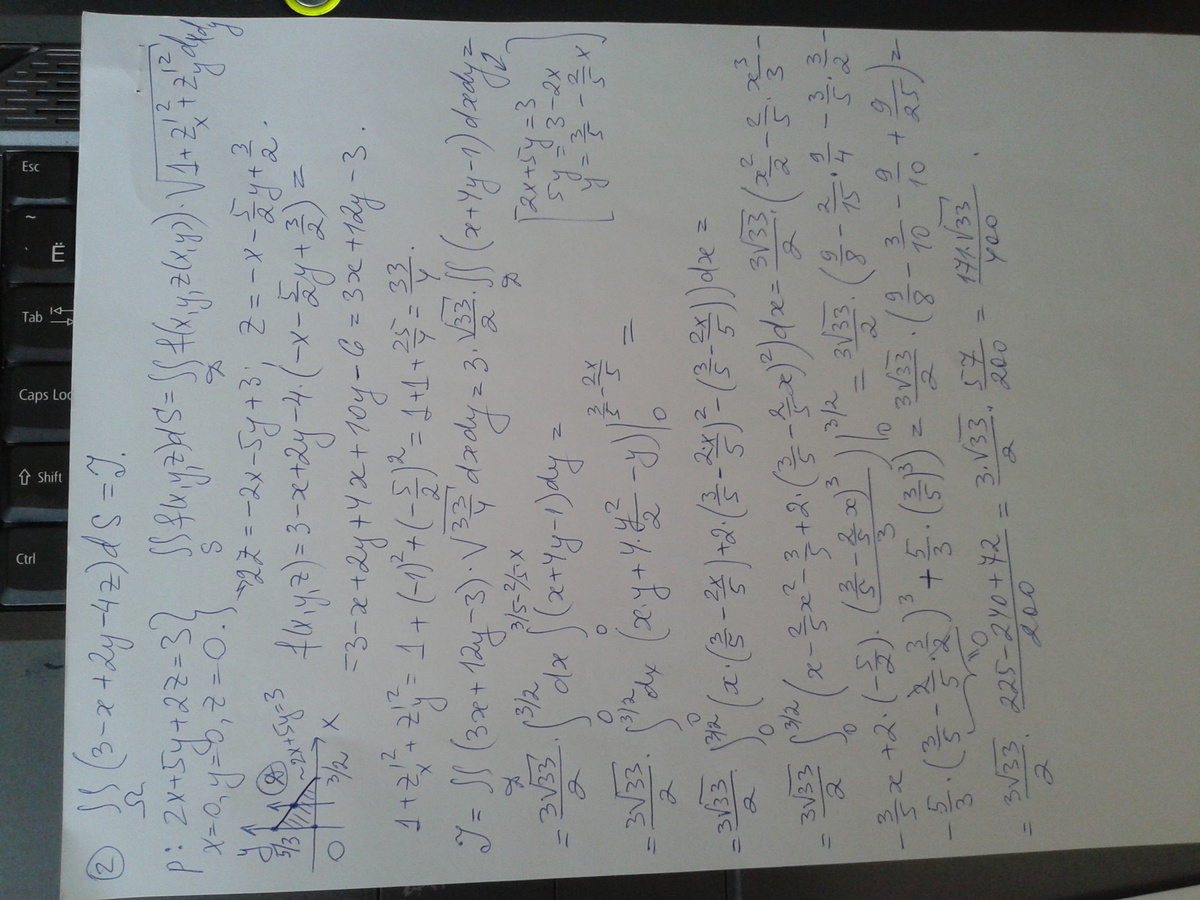 ② ∬_Ω (3-x+2y-4z)dS = J.
P: 2x+5y+2z=3 } ∬_S f(x,y,z)dS = ∬_D f(x,y,z(x,y))·√(1+z'_x²+z'_y²) dxdy
x=0, y=0, z=0. }
→ 2z = -2x-5y+3; z = -x - 5/2 y + 3/2.
f(x,y,z) = 3-x+2y-4·(-x - 5/2 y + 3/2) =
= 3-x+2y+4x+10y-6 = 3x+12y-3.
y
5/3
D
~2x+5y=3
0
3/2
x
1+z'_x²+z'_y² = 1+(-1)²+(-5/2)² = 1+1+25/4 = 33/4.
J = ∬_D (3x+12y-3)·√(33/4) dxdy = 3·√33/2·∬_D (x+4y-1)dxdy =
[2x+5y=3
5y=3-2x
y=3/5 - 2/5 x]
= 3√33/2·∫_0^{3/2} dx ∫_0^{3/5-2/5x} (x+4y-1)dy =
= 3√33/2·∫_0^{3/2} dx (x·y+4·y²/2 - y)|_0^{3/5-2x/5} =
= 3√33/2·∫_0^{3/2} (x·(3/5 - 2x/5)+2·(3/5 - 2x/5)² - (3/5 - 2x/5))dx =
= 3√33/2 ∫_0^{3/2} (x - 2/5 x² - 3/5 + 2·(3/5 - 2/5 x)²)dx = 3√33/2·(x²/2 - 2/5·x³/3 -
- 3/5 x + 2·(-5/2)·(3/5 - 2/5 x)³/3)|_0^{3/2} = 3√33/2·(9/8 - 2/15·9/4 - 3/5·3/2 -
- 5/3·(3/5 - 2/5·3/2)³ + 5/3·(3/5)³) = 3√33/2·(9/8 - 3/10 - 9/10 + 9/25) =
"0
= 3√33/2·(225-240+72)/200 = 3·√33/2·57/200 = 171·√33/400.
Esc
~
Ё
Tab
Caps Loc
Shift
Ctrl